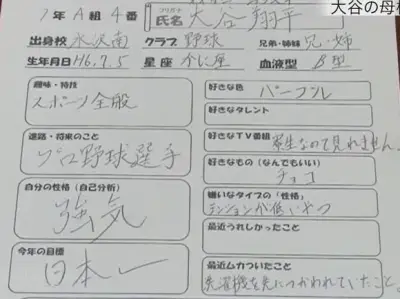 大谷の母校
1年 A組 4番
フリガナ
氏名 大谷翔平
出身校 水沢南 クラブ 野球 兄弟・姉妹 兄・姉
生年月日 H6.7.5 星座 かに座 血液型 B型
趣味・特技
スポーツ全般
進路・将来のこと
プロ野球選手
自分の性格（自己分析）
強気
今年の目標
日本一
好きな色
パープル
好きなタレント
好きなTV番組
寮生なので見れません。
好きなもの（なんでもいい）
チョコ
嫌いなタイプの（性格）
テンションが低いやつ
最近うれしかったこと
最近ムカついたこと
洗濯機を先につかわれていたこと。